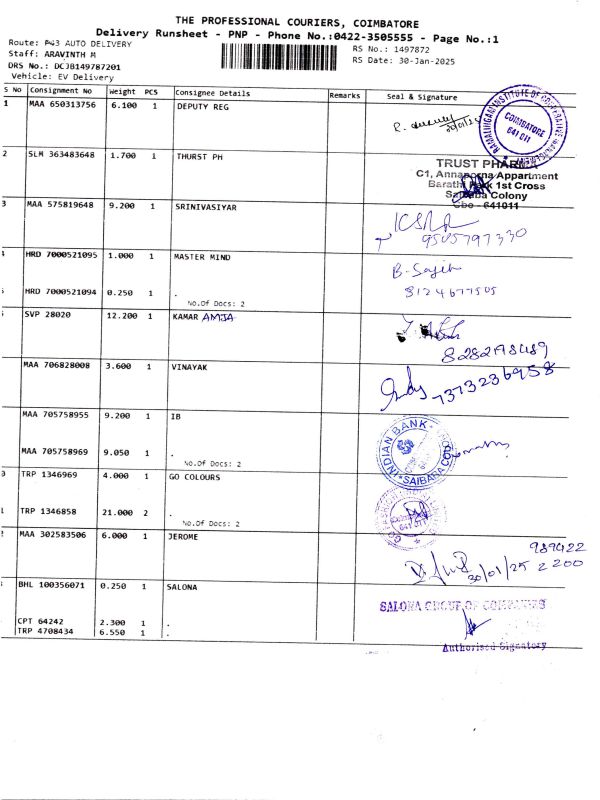 THE PROFESSIONAL COURIERS, COIMBATORE
Delivery Runsheet - PNP - Phone No.:0422-3505555 - Page No.:1
Route: P43 AUTO DELIVERY
RS No.: 1497872
Staff: ARAVINTH M
RS Date: 30-Jan-2025
DRS No.: DCJB149787201
Vehicle: EV Delivery
S No Consignment No Weight PCS Consignee Details Remarks Seal & Signature
1 MAA 650313756 6.100 1 DEPUTY REG
COIMBATORE
641 011
2 SLM 363483648 1.700 1 THURST PH
TRUST PHARMA
C1, Annaporna Appartment
Barathi Park 1st Cross
Saibaba Colony
Cbe - 641011
3 MAA 575819648 9.200 1 SRINIVASIYAR
9505797330
4 HRD 7000521095 1.000 1 MASTER MIND
B. Sajith
8124677505
HRD 7000521094 0.250 1 .
No.Of Docs: 2
SVP 28020 12.200 1 KAMAR AMJA
8282198489
MAA 706828008 3.600 1 VINAYAK
7373236958
MAA 705758955 9.200 1 IB
INDIAN BANK
SAIBABA COLONY
MAA 705758969 9.050 1 .
No.Of Docs: 2
TRP 1346969 4.000 1 GO COLOURS
TRP 1346858 21.000 2 .
No.Of Docs: 2
641 011
MAA 302583506 6.000 1 JEROME
989422
30/01/25 2200
BHL 100356071 0.250 1 SALONA
SALONA GROUP OF COMPANIES
CPT 64242 2.300 1 .
TRP 4708434 6.550 1 .
Authorised Signatory